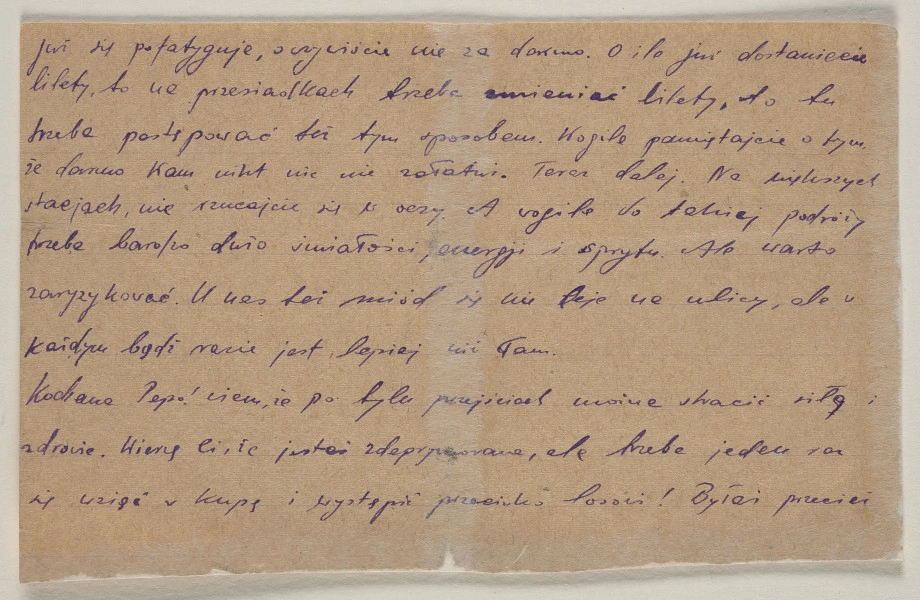 już się pofatyguje, oczywiście nie za darmo. O ile już dostaniecie
bilety, to na przesiadkach trzeba zmieniać bilety, to tu
trzeba postępować też tym sposobem. Wogile pamiętajcie o tym,
że darmo Wam nikt nic nie załatwi. Teraz dalej. Na większych
stacjach, nie rzucajcie się w oczy. A wogile do takiej podróży
trzeba bardzo dużo śmiałości, energji i sprytu. Ale warto
zaryzykować. U nas też miód się nie leje na ulicy, ale w
każdym bądź razie jest lepiej niż Tam.
Kochana Pepo! wiem, że po tylu przejściach można stracić siłę i
zdrowie. Wierzę Ci, że jesteś zdeprymowana, ale trzeba jeden raz
się wziąć w kupę i wystąpić przeciwko losowi! Byłaś przecież